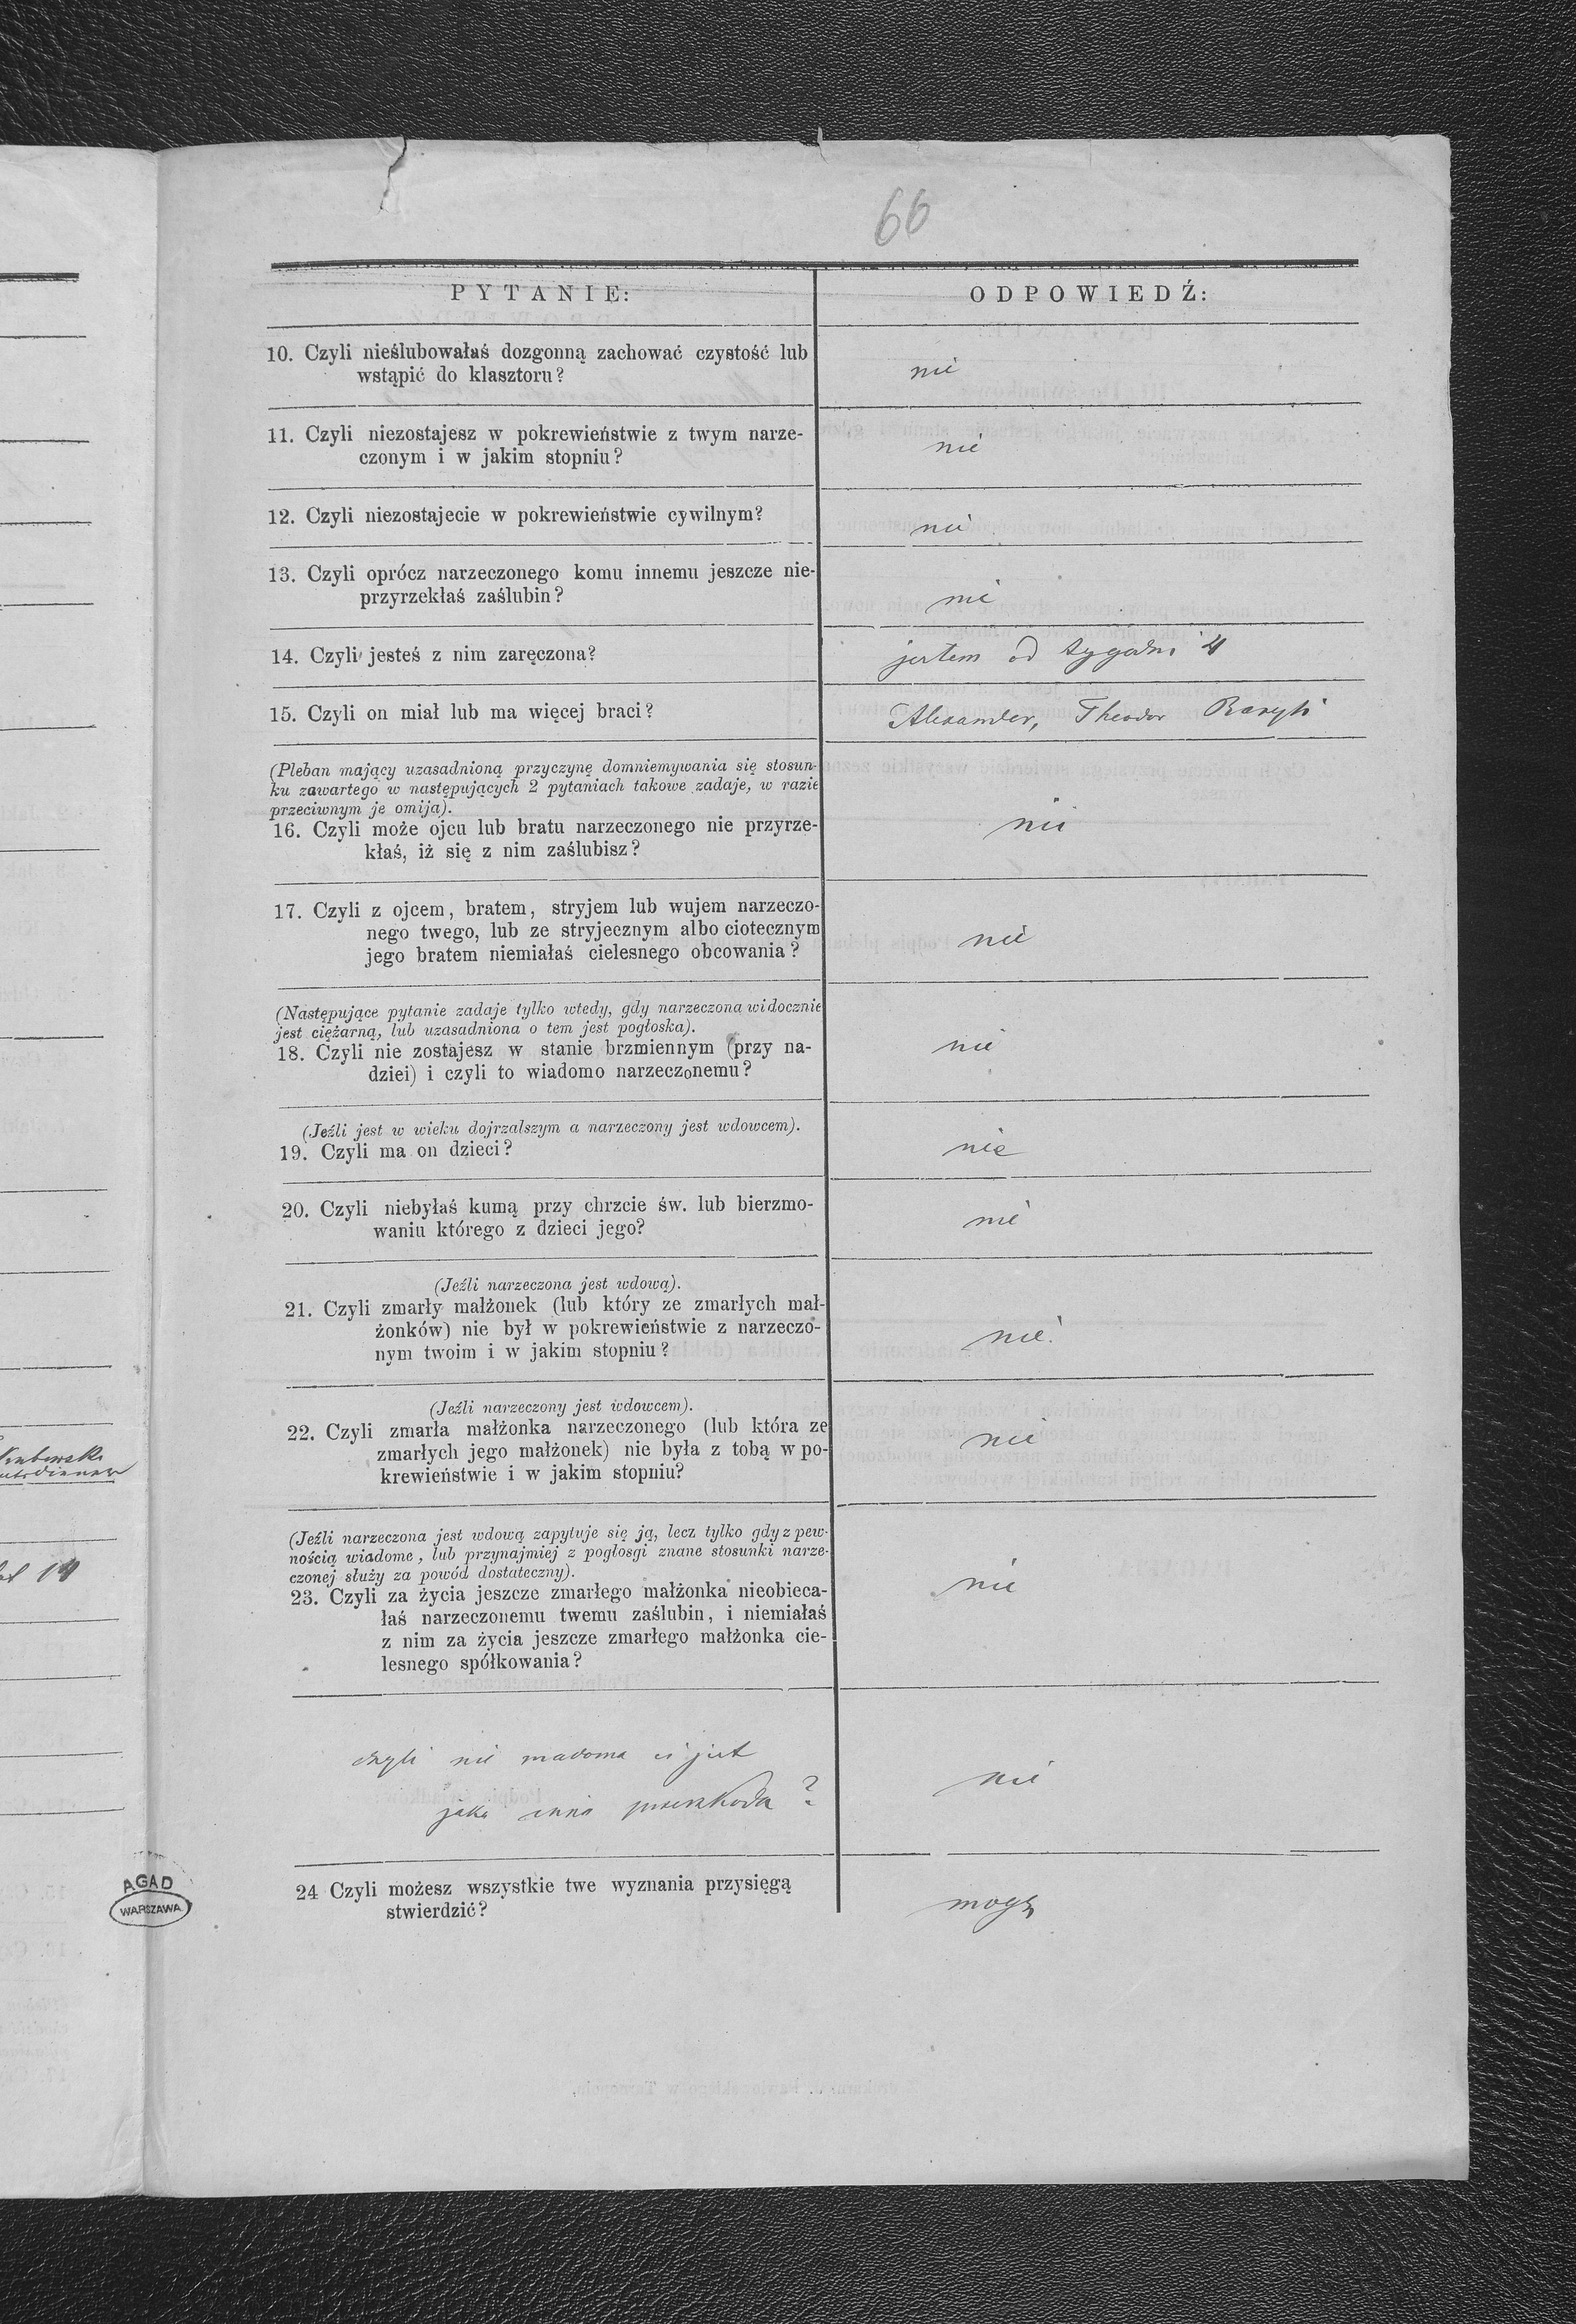 66
PYTANIE:
ODPOWIEDŹ:
10. Czyli nieślubowałaś dozgonną zachować czystość lub
wstąpić do klasztoru?
nie
11. Czyli niezostajesz w pokrewieństwie z twym narze-
czonym i w jakim stopniu?
nie
12. Czyli niezostajecie w pokrewieństwie cywilnym?
nie
13. Czyli oprócz narzeczonego komu innemu jeszcze nie-
przyrzekłaś zaślubin?
nie
14. Czyli jesteś z nim zaręczona?
jestem od tygodni 4
15. Czyli on miał lub ma więcej braci?
Alexander, Theodor
(Pleban mający uzasadnioną przyczynę domniemywania się stosun-
ku zawartego w następujących 2 pytaniach takowe zadaje, w razie
przeciwnym je omija).
16. Czyli może ojcu lub bratu narzeczonego nie przyrze-
kłaś, iż się z nim zaślubisz?
nie
17. Czyli z ojcem, bratem, stryjem lub wujem narzeczo-
nego twego, lub ze stryjecznym albo ciotecznym
jego bratem niemiałaś cielesnego obcowania?
nie
(Następujące pytanie zadaje tylko wtedy, gdy narzeczona widocznie
jest ciężarną, lub uzasadniona o tem jest pogłoska).
18. Czyli nie zostajesz w stanie brzmiennym (przy na-
dziei) i czyli to wiadomo narzeczonemu?
nie
(Jeźli jest w wieku dojrzalszym a narzeczony jest wdowcem).
19. Czyli ma on dzieci?
nie
20. Czyli niebyłaś kumą przy chrzcie św. lub bierzmo-
waniu którego z dzieci jego?
nie
(Jeźli narzeczona jest wdową).
21. Czyli zmarły małżonek (lub który ze zmarłych mał-
żonków) nie był w pokrewieństwie z narzeczo-
nym twoim i w jakim stopniu?
nie
(Jeźli narzeczony jest wdowcem).
22. Czyli zmarła małżonka narzeczonego (lub która ze
zmarłych jego małżonek) nie była z tobą w po-
krewieństwie i w jakim stopniu?
nie
(Jeźli narzeczona jest wdową zapytuje się ją, lecz tylko gdy z pew-
nością wiadome, lub przynajmiej z pogłosgi znane stosunki narze-
czonej służy za powód dostateczny).
23. Czyli za życia jeszcze zmarłego małżonka nieobieca-
łaś narzeczonemu twemu zaślubin, i niemiałaś
z nim za życia jeszcze zmarłego małżonka cie-
lesnego spółkowania?
nie
czyli nie jest
jaka inna przeszkoda?
nie
24 Czyli możesz wszystkie twe wyznania przysięgą
stwierdzić?
mogę
AGAD
WARSZAWA